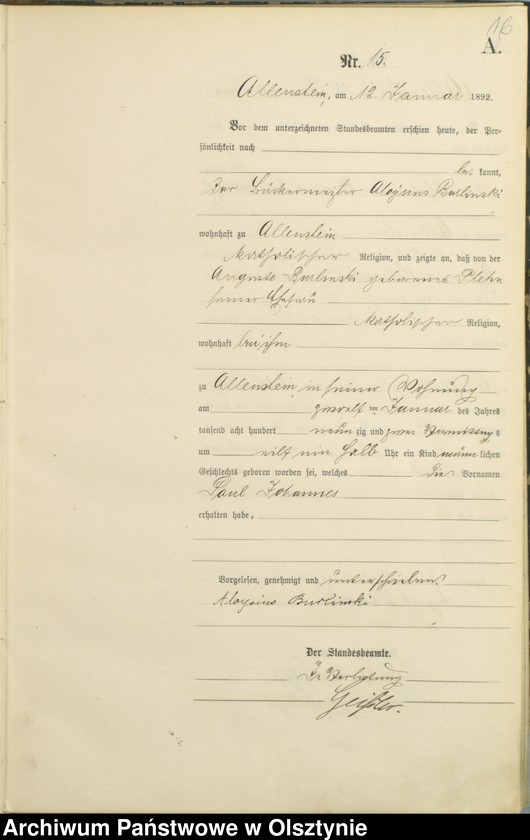 16
A.
Nr. 15.
Allenstein, am 12. Januar 1892.
Vor dem unterzeichneten Standesbeamten erschien heute, der Per-
sönlichkeit nach
be kannt,
der Bäckermeister Aloysius Burlinski
wohnhaft zu Allenstein
katholischer Religion, und zeigte an, daß von der
Auguste Burlinski geborenen Plehn
seiner Ehefrau
katholischer Religion,
wohnhaft bei ihm
zu Allenstein, in seiner Wohnung
am zwölften Januar des Jahres
tausend acht hundert neun zig und zwei Vormittags
um eilf ein halb Uhr ein Kind männ lichen
Geschlechts geboren worden sei, welches die Vornamen
Paul Johannes
erhalten habe.
Vorgelesen, genehmigt und unterschrieben
Aloysius Burlinski
Der Standesbeamte.
In Vertretung
Archiwum Państwowe w Olsztynie